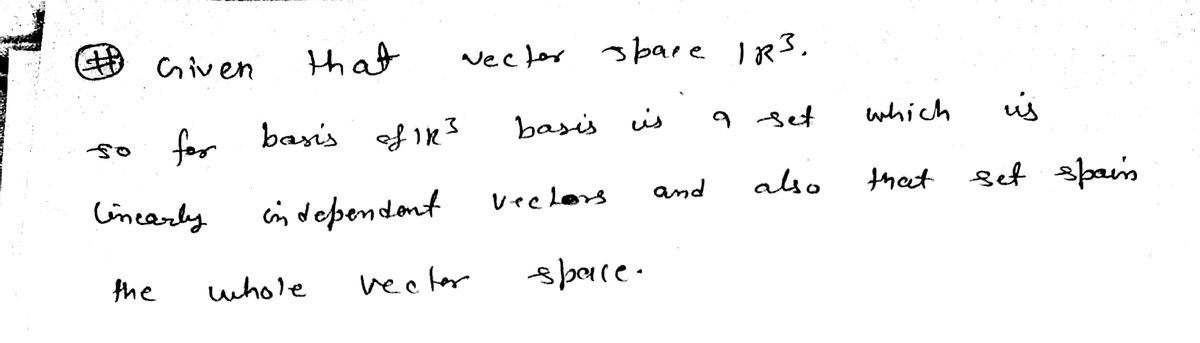 # Given that vector space IR³.
so for basis of IR³ basis is a set which is
linearly independent vectors and also that set spain
the whole vector space.